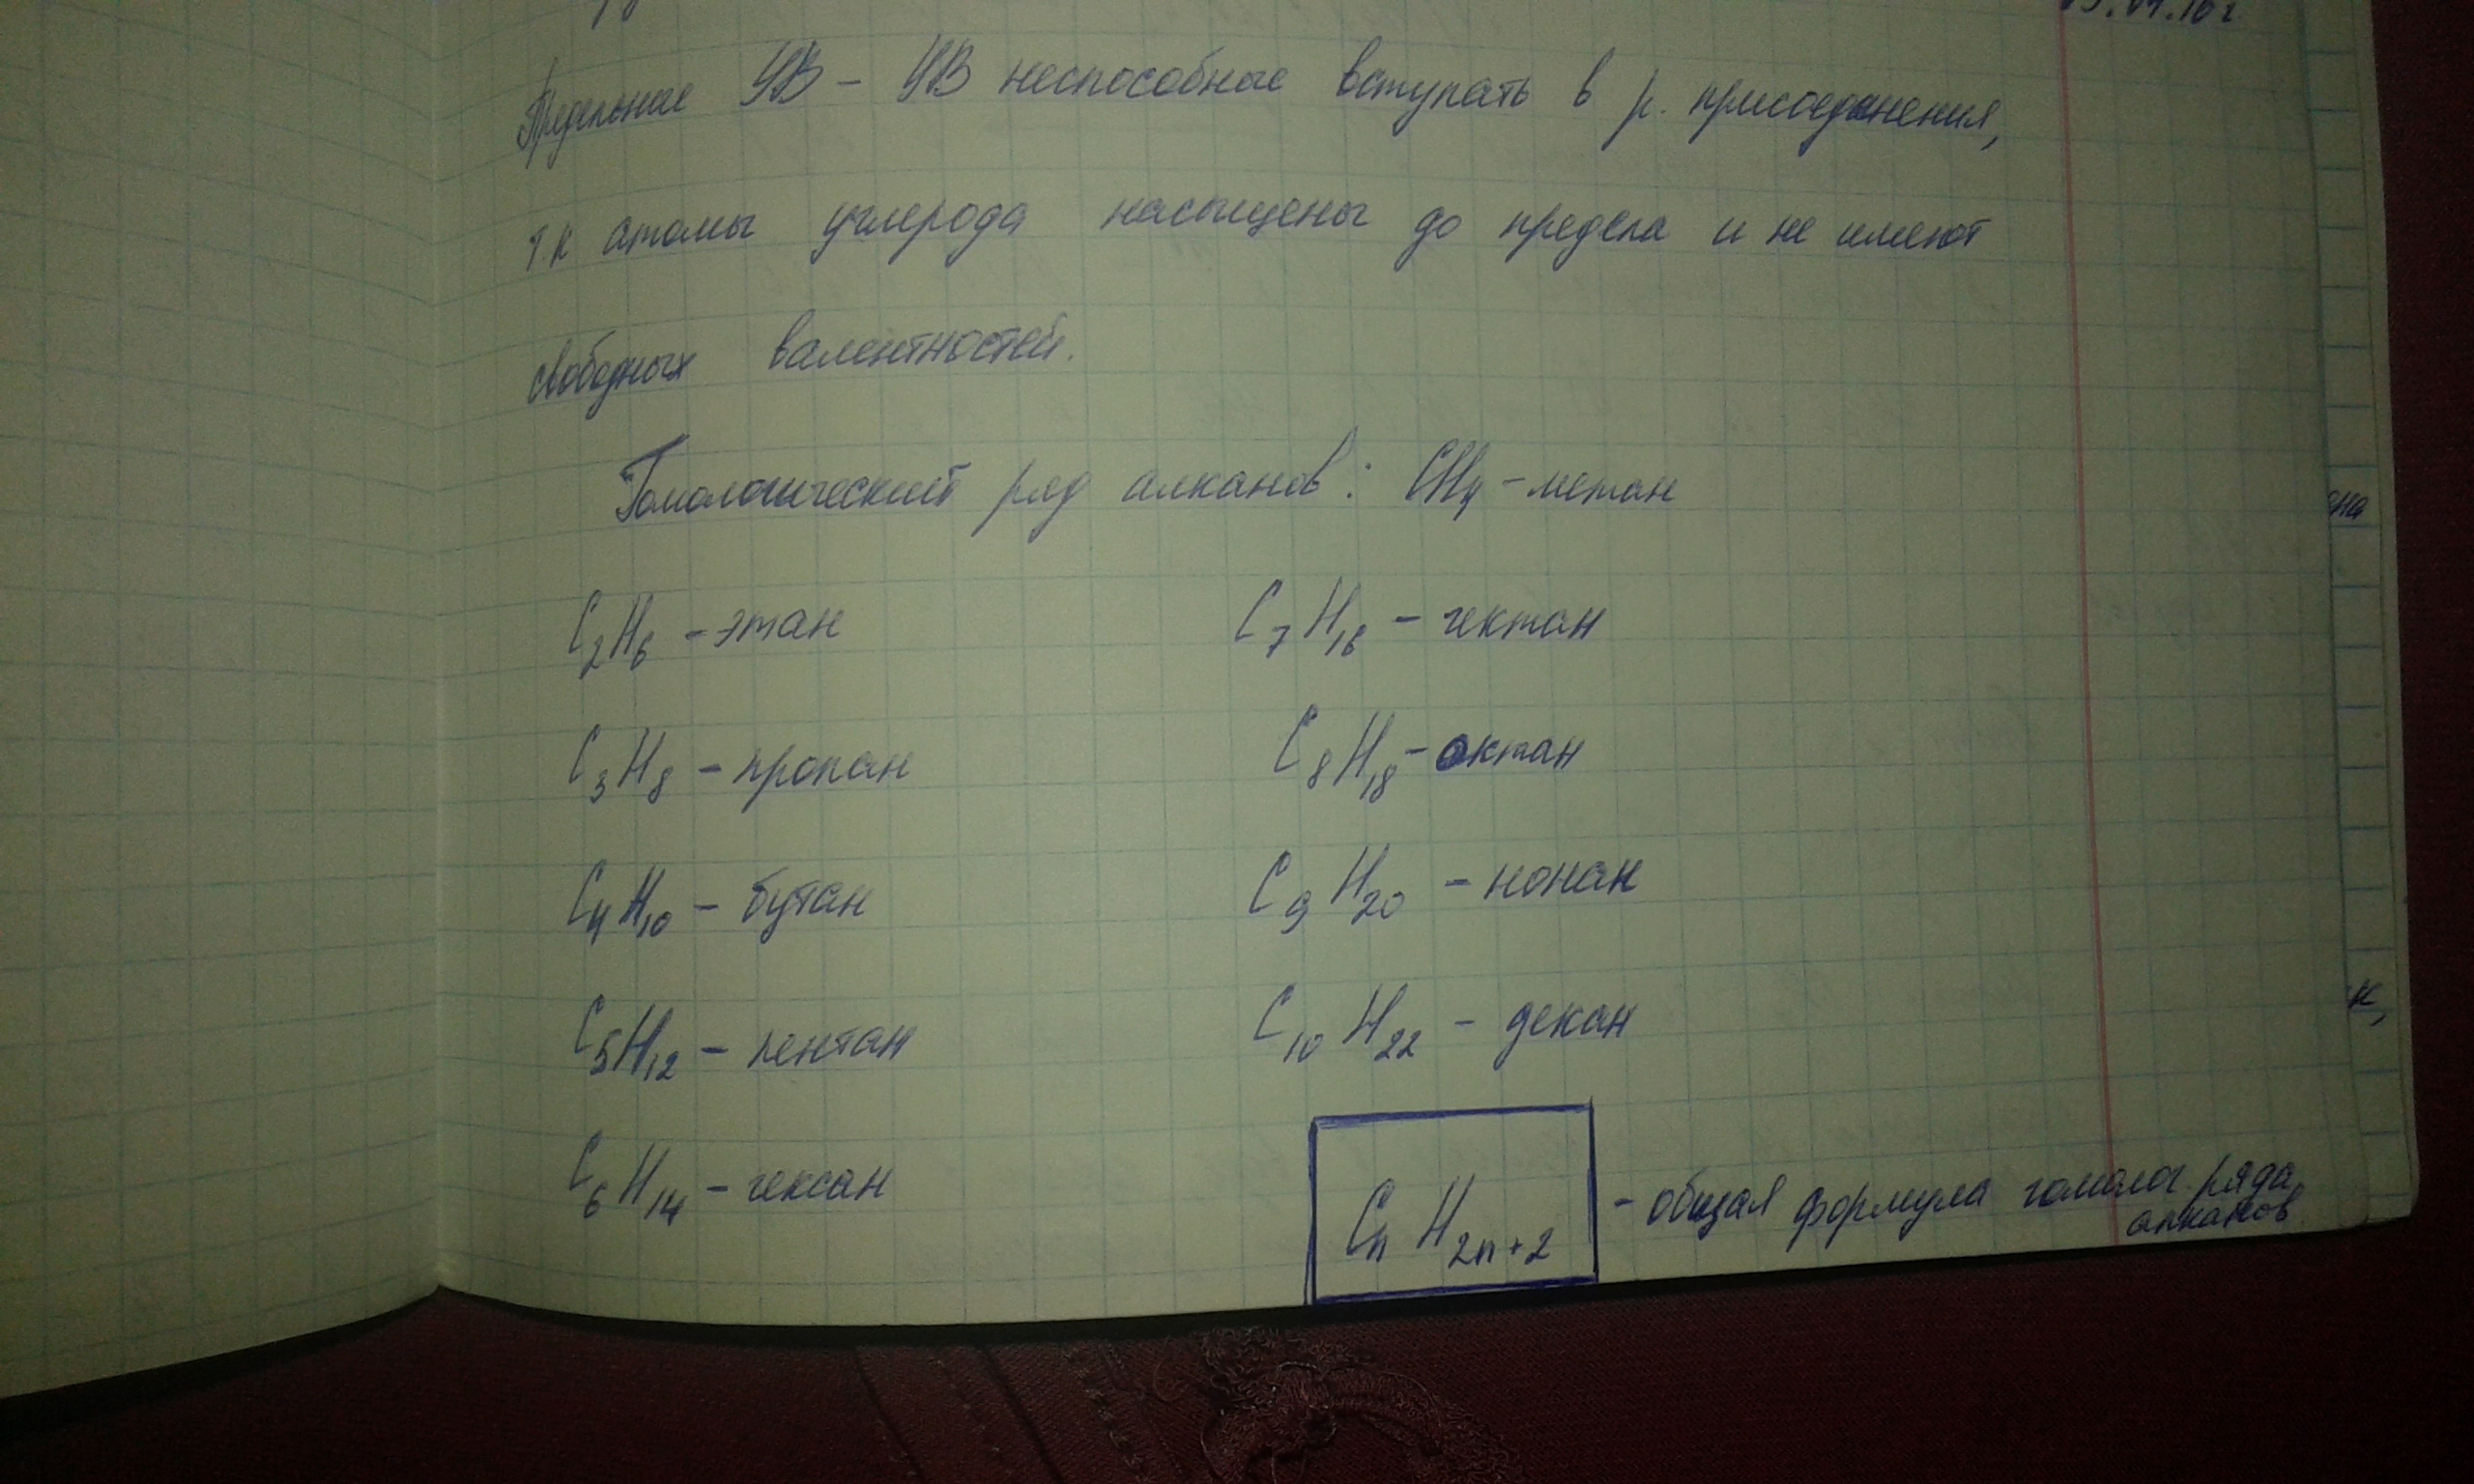 Предельные УВ – УВ неспособные вступать в р. присоединения,
т к атомы углерода насыщены до предела и не имеют
свободных валентностей.
Гомологический ряд алканов: CH₄ – метан
C₂H₆ – этан
C₃H₈ – пропан
C₄H₁₀ – бутан
C₅H₁₂ – пентан
C₆H₁₄ – гексан
C₇H₁₆ – гектан
C₈H₁₈ – октан
C₉H₂₀ – нонан
C₁₀H₂₂ – декан
CₙH₂ₙ₊₂ – общая формула гомолог. ряда
алканов.